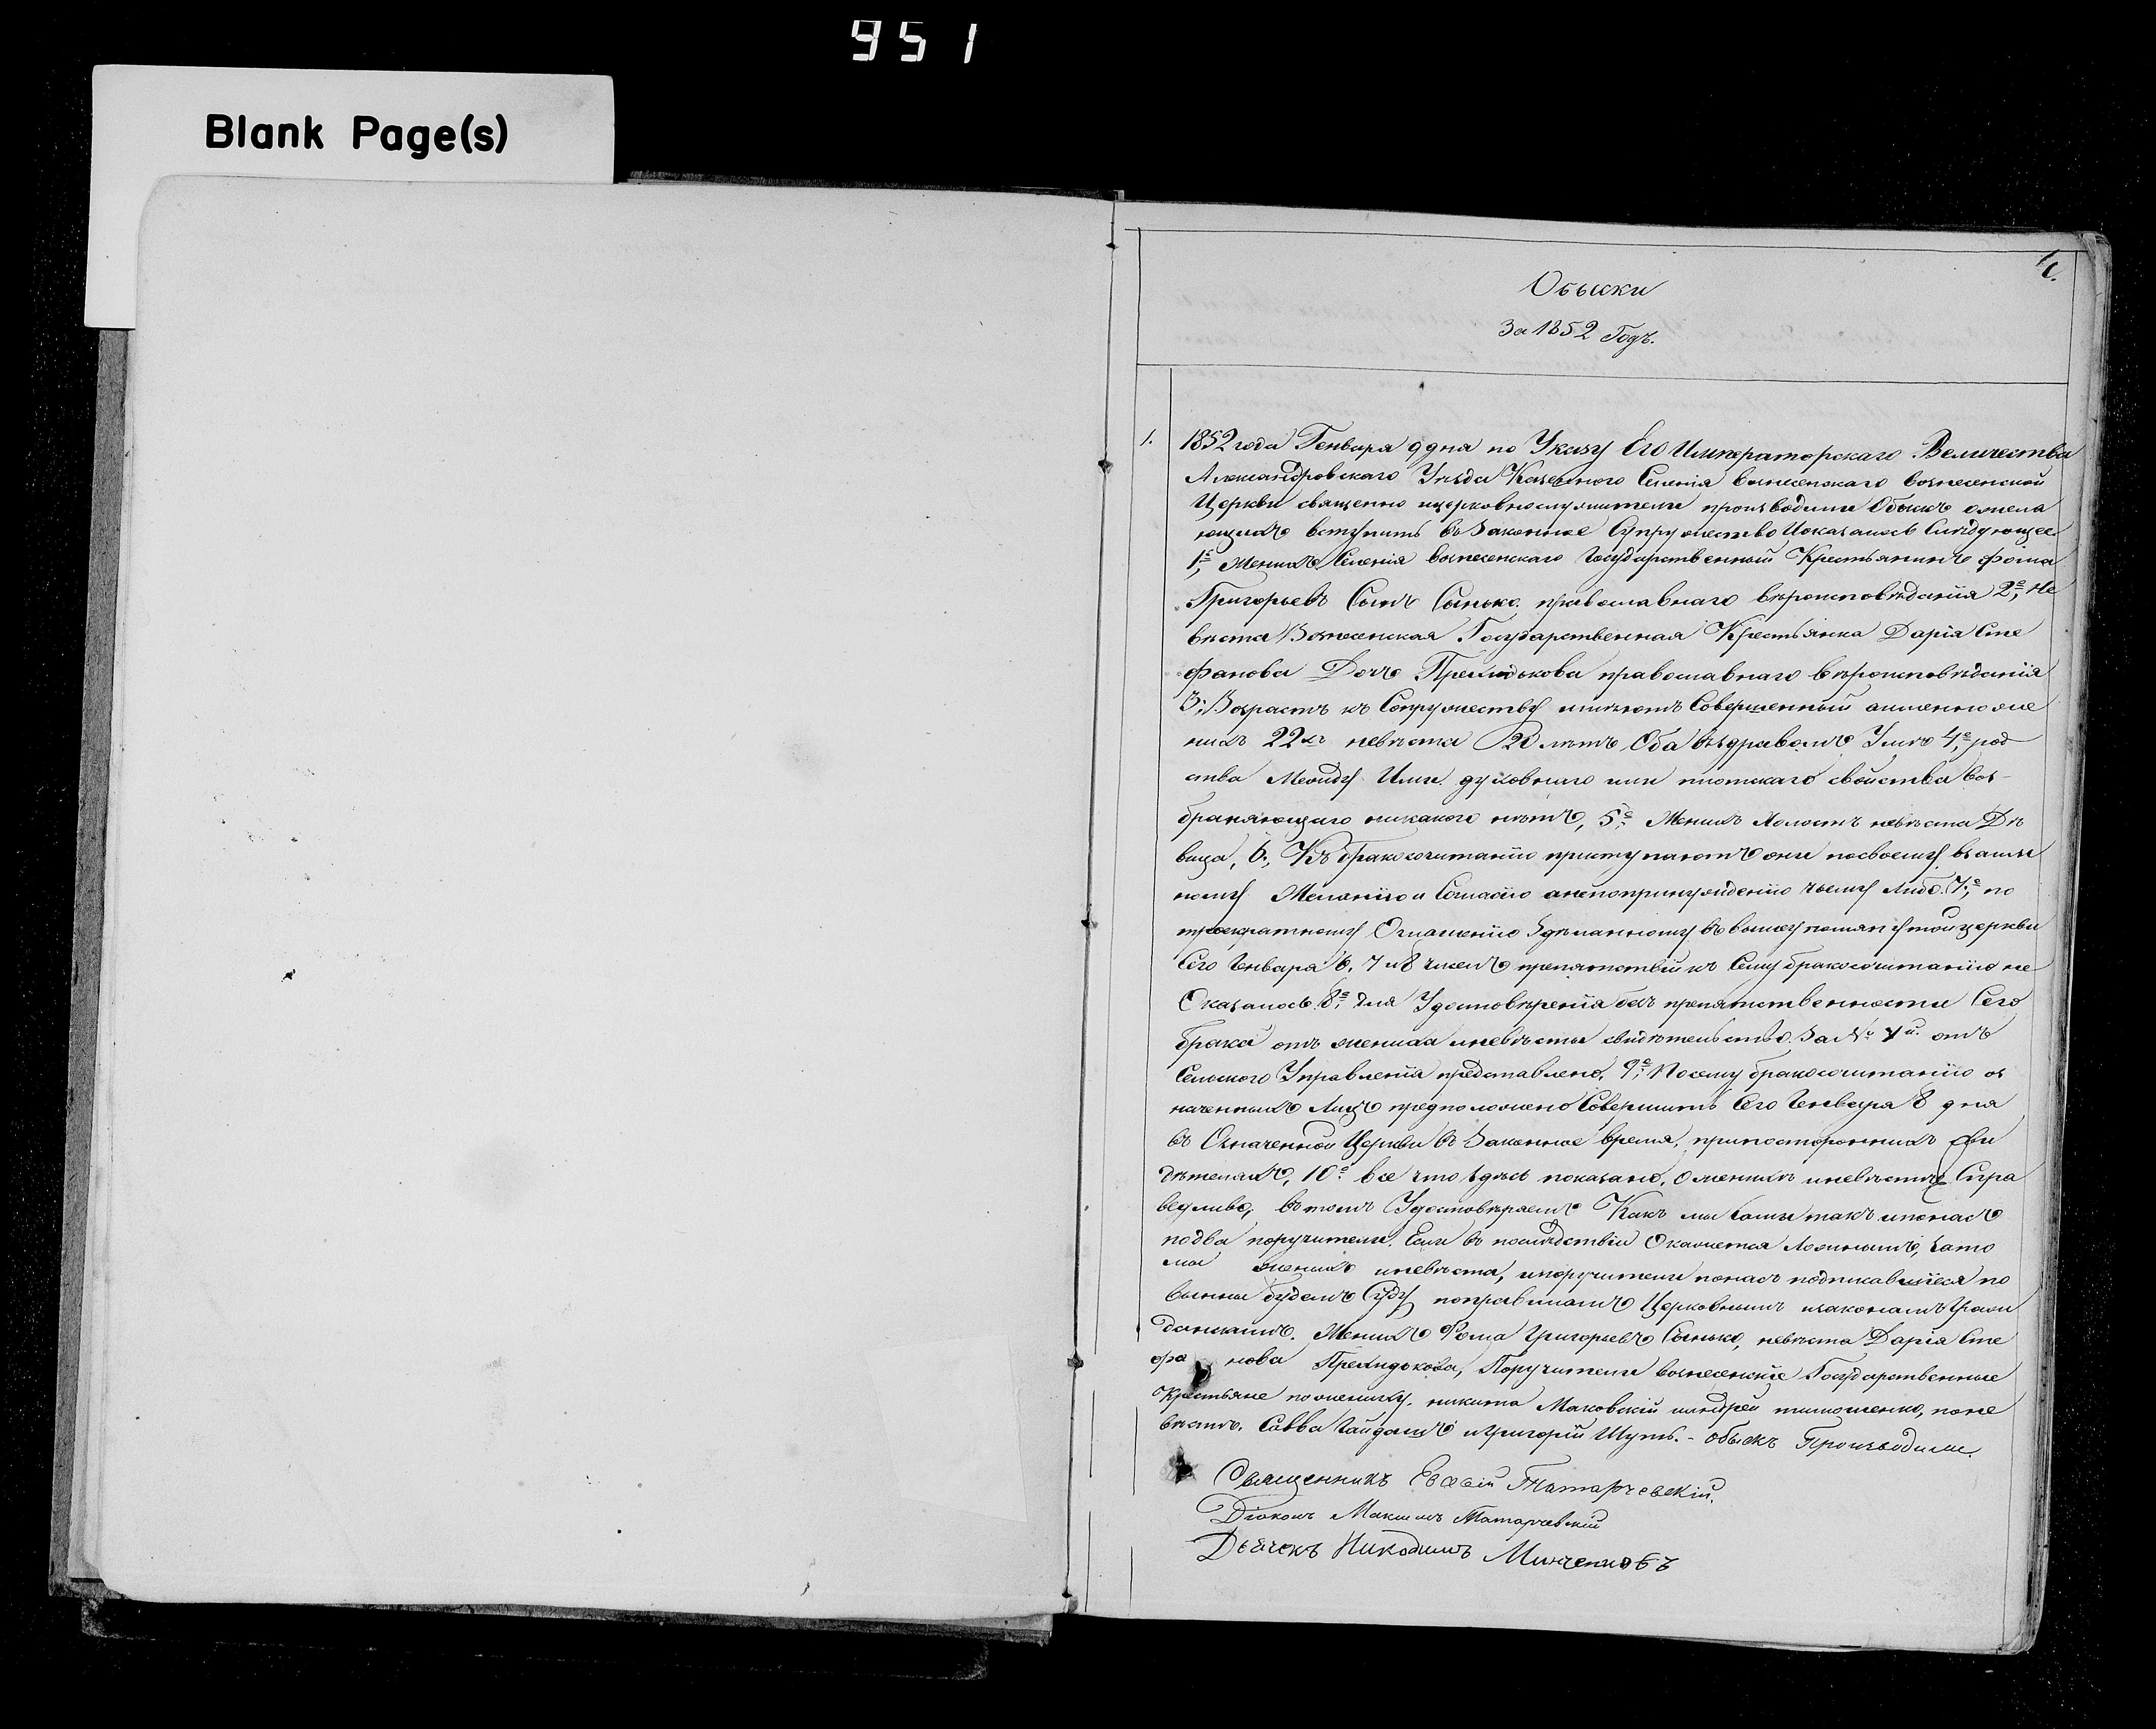 951
Blank Page(s)
1.
Обыски
За 1852 Годъ.
1. 1852 года Генваря 9 дня по Указу Его Императорскаго Величества
Александровскаго Уѣзда Казенного Селенія вознесенскаго вознесенской
Церкви священно ицерковнослужители производили Обыскъ ожела
ющихъ вступить въ Законное Супружество Иоказалось Слѣдующее
1е, Женихъ Селенія вознесенскаго Государственный Крестьянинъ фома
Григорьевъ Сынъ Сынько православнаго вѣроисповѣданія 2е, Не
вѣста Вознесенская Государственная Крестьянка Дарія Сте
фанова Дочь православнаго вѣроисповѣданія
3; Возрастъ къ Сопружеству имѣютъ Совершенный аименно же
нихъ 22хъ невѣста 20 лѣтъ Оба въздравомъ Умѣ 4,е род
ства Между Ими духовнаго или плотскаго свойства воз-
браняющаго никакого нѣтъ, 5е Женихъ Холостъ невѣста Дѣ
вица, 6., Къ бракосочитанію приступаютъ они посвоему взаим
ному Желанію и Согласію анепопринужденію чьему либо. 7,е по
троекратному Оглашенію Здѣланному въ вышеупомянутой церкви
Сего Генваря 6, 7 и 8 чиселъ препятствій къ Сему бракосочитанію не
Оказалось. 8е, для Удостовѣренія безъ препятственности Сего
брака отъ жениха иневѣсты свидѣтельство За № отъ
Сельского Управленія представлено. 9е, Посему бракосочитанію оз
наченныхъ Лицъ предположено Совершить Сего Генваря 8 дня
въ Означенной Церкви въ Законное время, припостороннихъ Сви
дѣтеляхъ, 10е все что здѣсь показано, оженихѣ иневѣстѣ Спра
ведливо, въ томъ Удостовѣряемъ Какъ мы Сами такъ ипонасъ
подва поручители. Если въ послѣдствіи Окажется Ложнымъ, зато
мы женихъ иневѣста, ипоручители понасъ подписавшіеся по
винны будемъ Суду поправиламъ Церковнымъ изаконамъ Граж
данскимъ. Женихъ Фома Григорьевъ Сынько, невѣста Дарія Сте
фанова Поручители вознесенскіе Государственные
Крестьяне пожениху. никита Маковскій иандрей тимошенко, поне
вѣстѣ. Савва Гайдамъ иГригорій Шуть. - обыскъ Производили.
Священникъ Евфій Татарчевскій.
Діаконъ Максимъ Татарчевскій
Дьячокъ Никодимъ Минченковъ